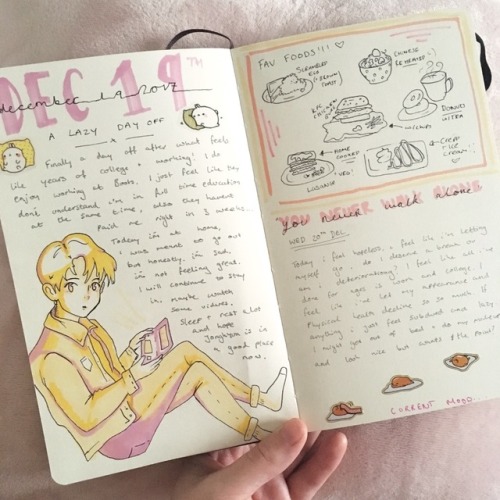 DEC 19TH
december 19 2017
A LAZY DAY OFF
x
Finally a day off after what feels
like years of college & working! I do
enjoy working at Boots, I just feel like they
don't understand i'm in full time education
at the same time, also they havent
paid me right in 3 weeks...
Today im at home,
i was meant to go out
but honestly, im sad,
im not feeling great.
I will continue to stay
in, maybe watch
some videos.
Sleep & rest a lot
and hope
Jonghyun is in
a good place
now.
FAV FOODS!!!
SCRAMBLED
EGG
(+ BROWN)
TOAST
CHINESE
KFC
CHICKEN
DONUTS
HOME
COOKED
LASAGNA
YOU NEVER WALK ALONE
you never walk alone
WED 20TH DEC
Today i feel hopeless, i feel like i'm letting
myself go, do i deserve a break or
am i deteriorating? I feel like all i've
done for ages is work and college. I
feel like i've let my appearance and
Physical health decline so so much. If
anything i just feel subdued and lazy.
I might get out of bed & do my makeup
and look nice but whats the point
CURRENT MOOD...